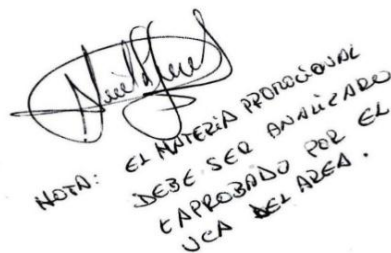 NOTA: EL MATERIA PROMOCIONAL
DEBE SER ANALIZADO
EAPROBADO POR EL
UCA DEL AREA.